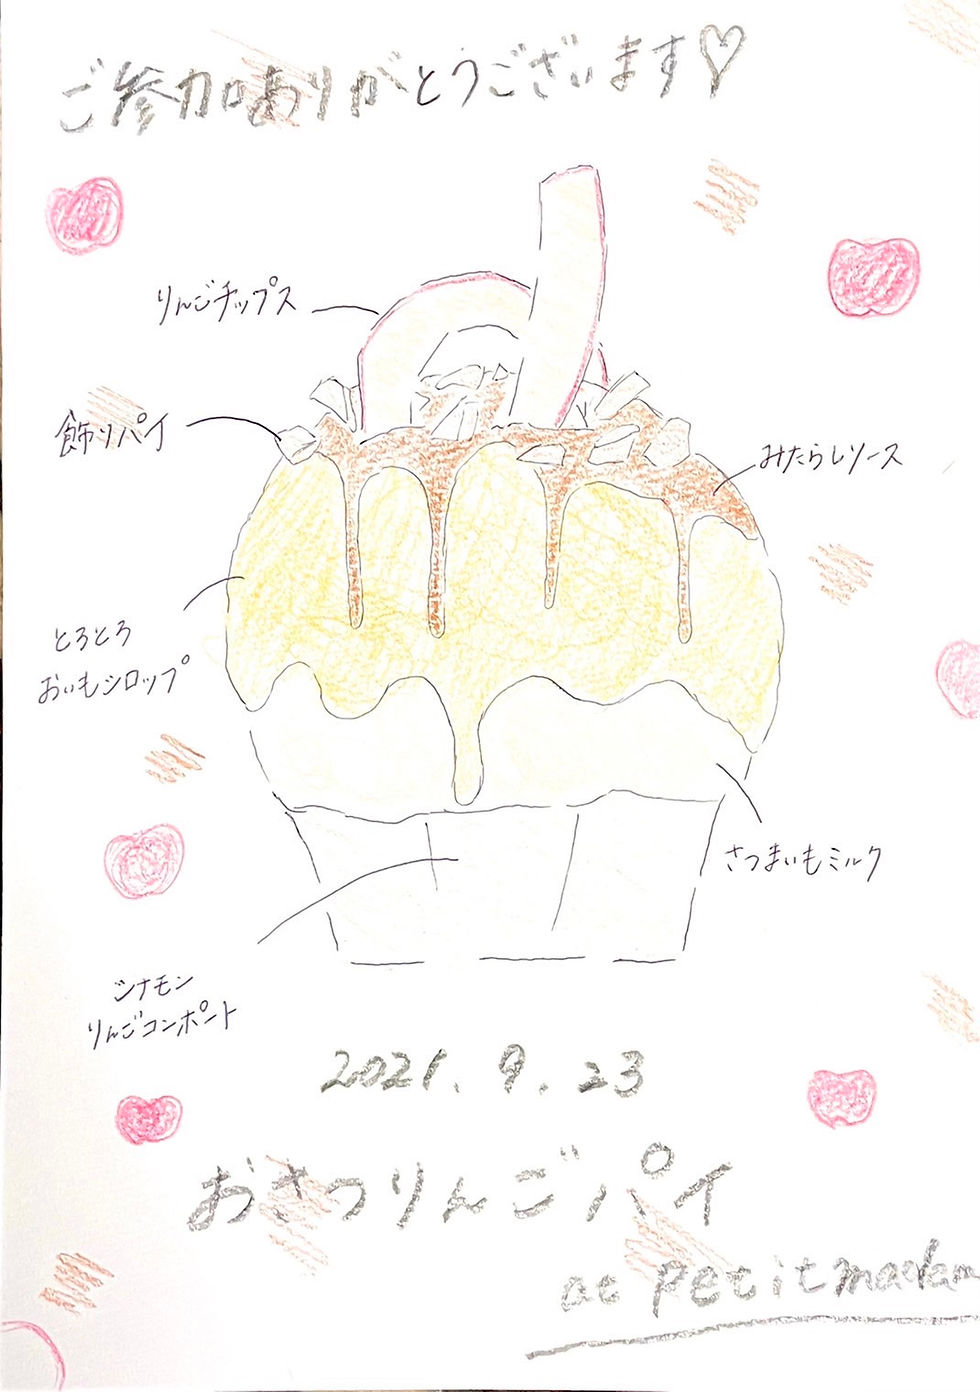 ご参加ありがとうございます♡
りんごチップス
飾りパイ
みたらしソース
とろとろ
おいもシロップ
さつまいもミルク
シナモン
りんごコンポート
2021.9.23
おさつりんごパイ
at petitmadam